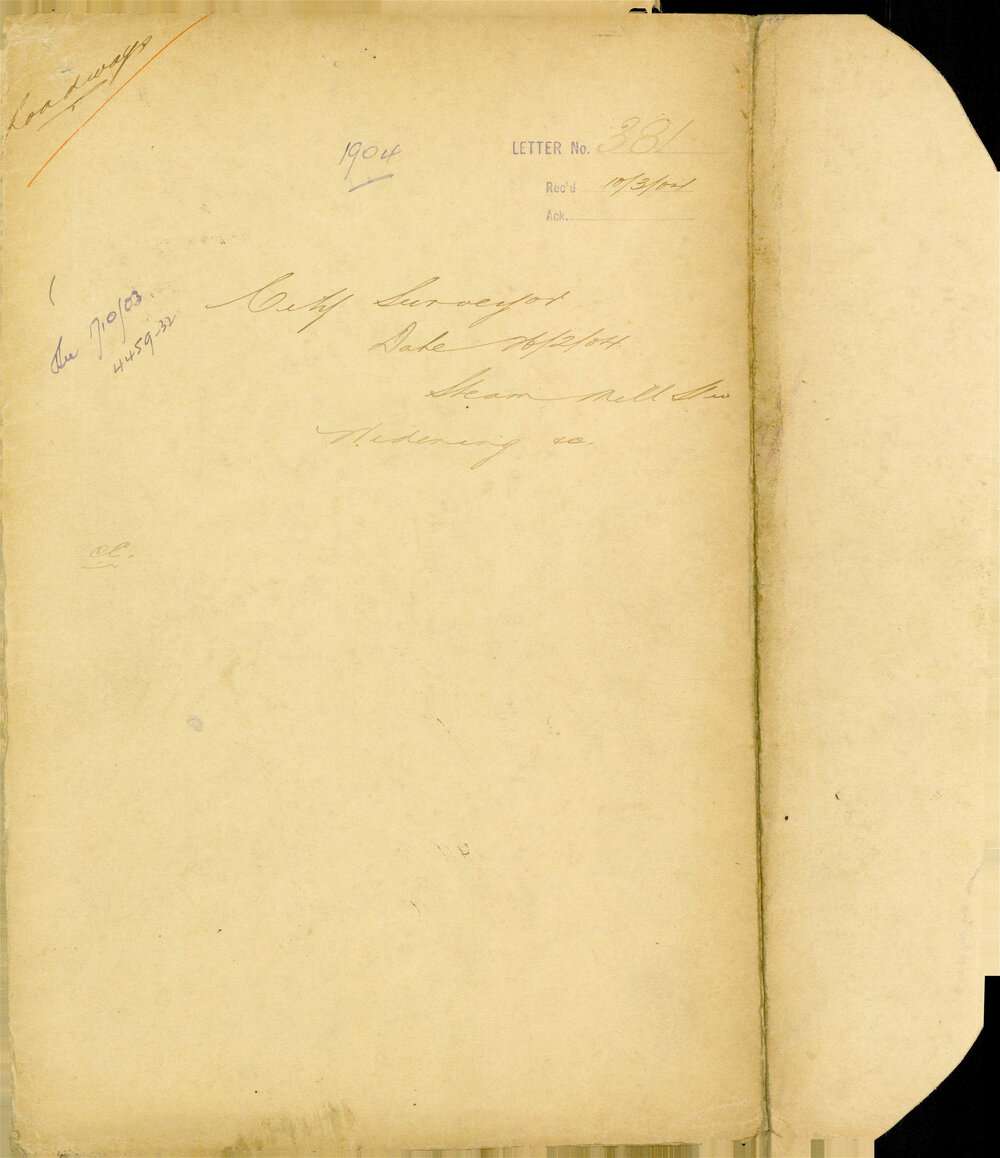 Roadways
1904
LETTER No. 381
Rec'd 10/3/04
Ack.
See 710/03
4459-32
City Surveyor
Date 26/2/04
Steam Mill St
Widening &c.